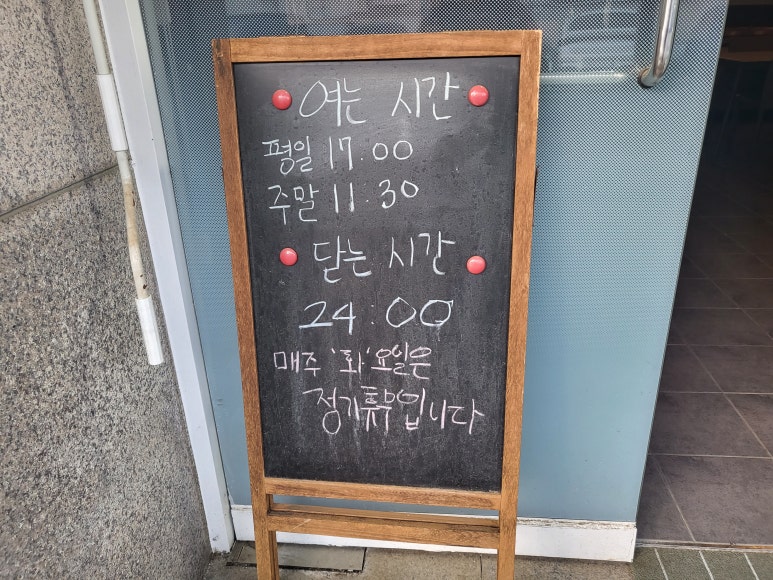 여는 시간
평일 17.00
주말 11.30
닫는 시간
24:00
매주 '화'요일은
정기휴무입니다